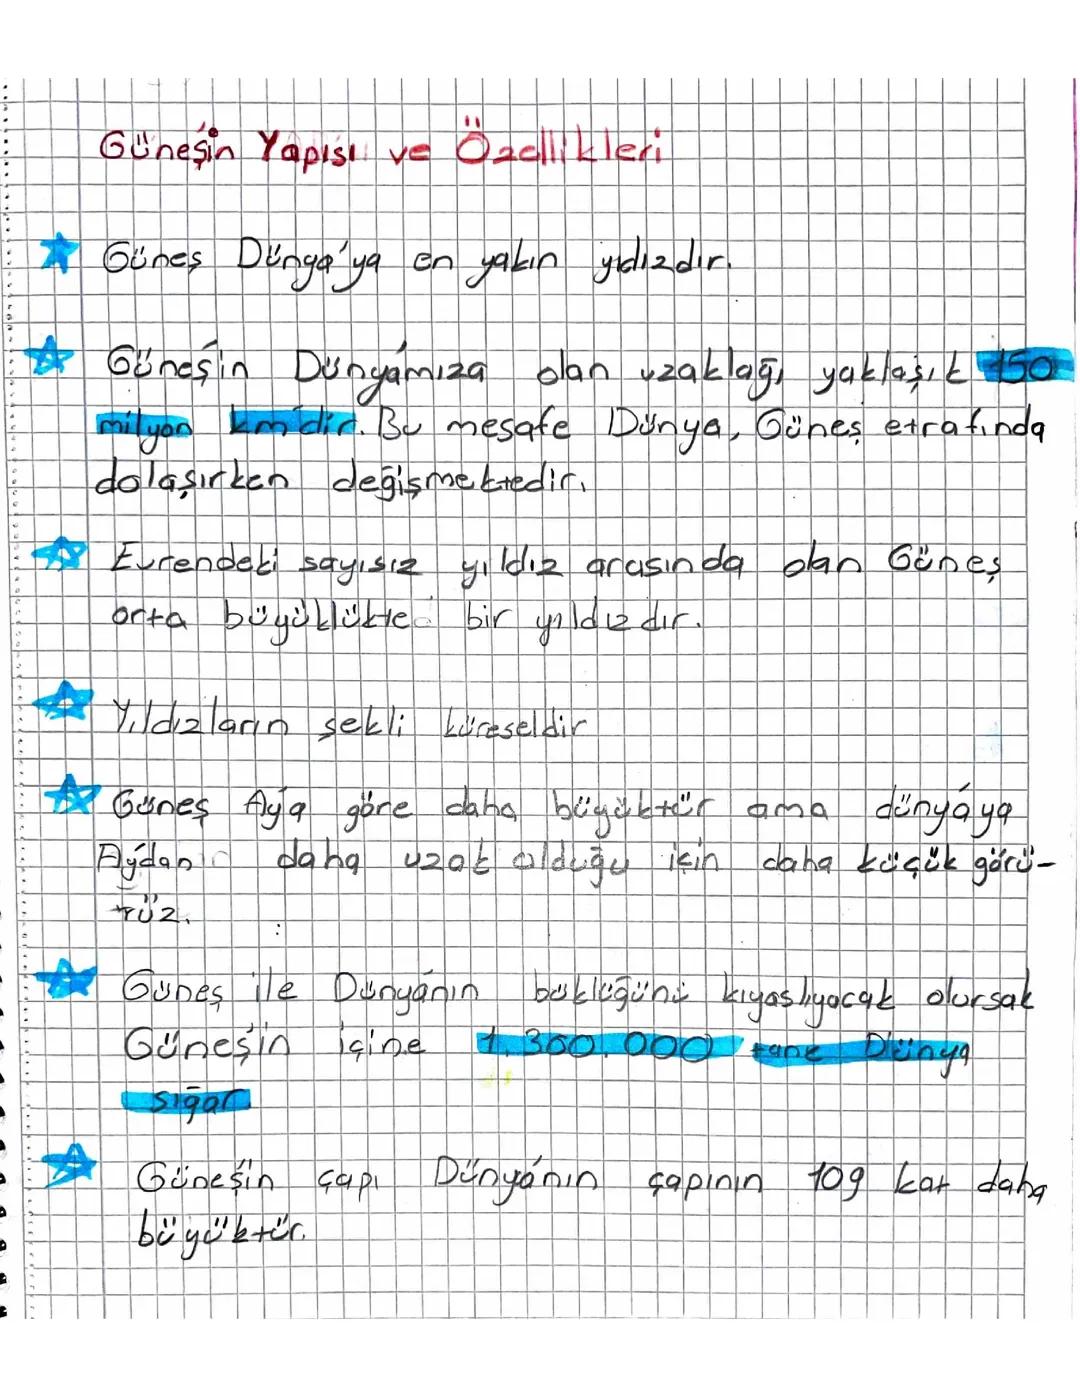 Güneşin Yapısı ve Özellikleri
Güneş Dünya'ya en yakın yıldızdır.
Güneş'in Dünyamıza olan uzaklağı yaklaşık 150
milyon km'dir. Bu mesafe Dünya, Güneş etrafında
dolaşırken değişmektedir.
Evrendeki sayısız yıldız arasında olan Güneş
orta büyüklükte bir yıldızdır.
Yıldızların şekli küreseldir
Güneş Ay'a göre daha büyüktür ama dünya'ya
Ay'dan daha uzak olduğu için daha küçük görü-
rüz.
Güneş ile Dünya'nın büklüğünü kıyaslıyacak olursak
Güneş'in içine 1.300.000 tane Dünya
sığar
Güneş'in çapı Dünya'nın çapının 109 kat daha
büyüktür.